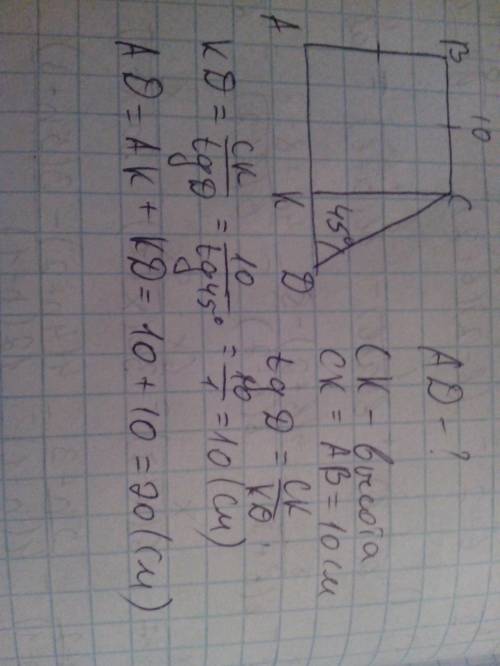 B 10 C
A K D
45°
AD - ?
CK - высота
CK = AB = 10 см
tg D = CK/KD
KD = CK/tg D = 10/tg 45° = 10/1 = 10 (см)
AD = AK + KD = 10 + 10 = 20 (см)